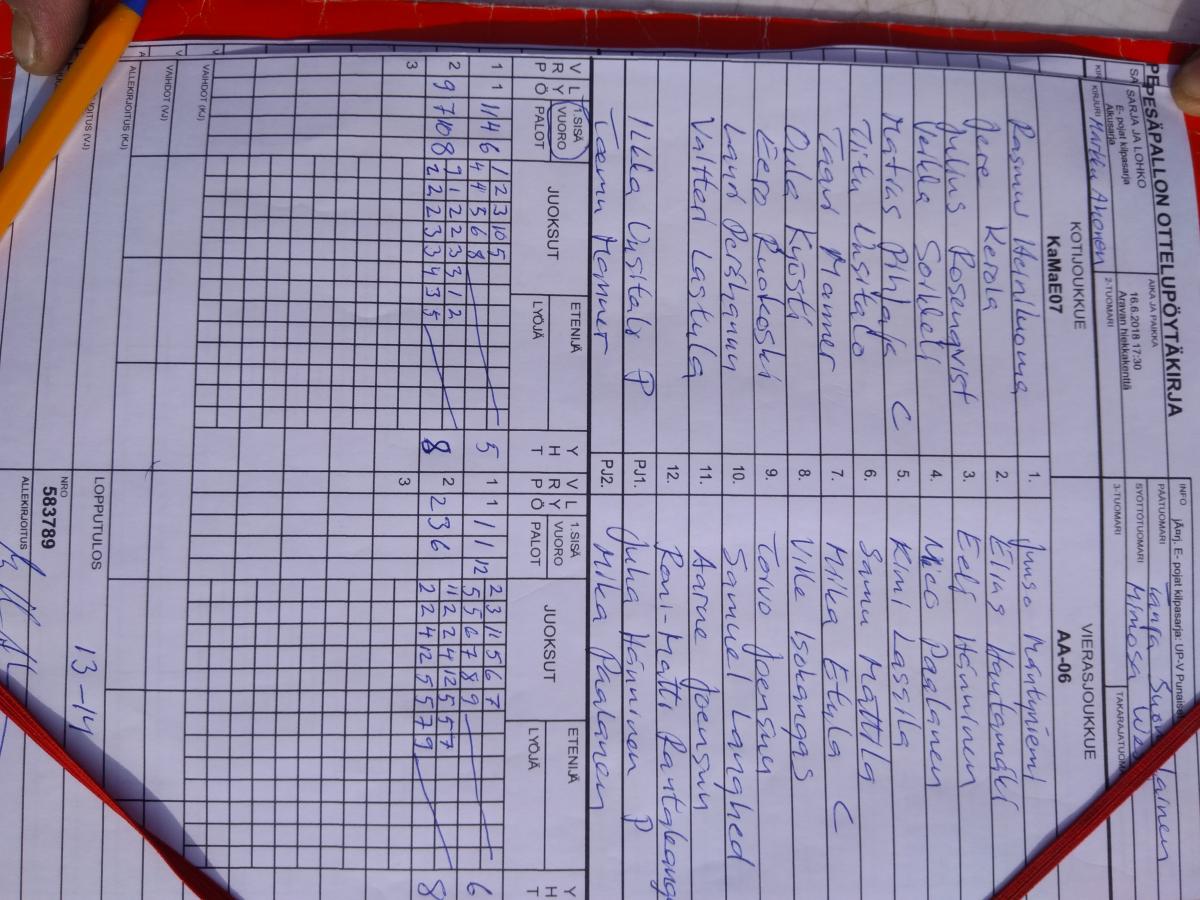 PESÄPALLON OTTELUPÖYTÄKIRJA
SARJA JA LOHKO
E- pojat kilpasarja
Alkusarja
AIKA JA PAIKKA
16.6.2018 17:30
Aravan hiekkakenttä
INFO
E- pojat kilpasarja: UP-V
PÄÄTUOMARI
Tanja
SYÖTTÖTUOMARI
Mimosa
KIRJURI
Markku Ahonen
2-TUOMARI
3-TUOMARI
KOTIJOUKKUE
KaMaE07
VIERASJOUKKUE
AA-06
Rasmus Heiniluoma 1. Juuso Mäntyniemi
Jere Kerola 2. Elias Hautamäki
Julius Rosenqvist 3. Eeli Hänninen
Veikka Sorikheli 4. Nico Paalanen
Matias Pihlaja C 5. Kimi Lassila
Titu Uusitalo 6. Samu Mattila
Taavi Manner 7. Miika Etula C
Oula Kyösti 8. Ville Isokangas
Eero Ruokoski 9. Toivo Joensuu
Lauri 10. Samuel Langhed
Valtteri Lastula 11. Aarne Joensuu
12. Roni-Matti
Ilkka Uusitalo P PJ1. Juha Hänninen P
Teemu Manner PJ2. Mika Paalanen
V R P L Y Ö 1.SISÄ VUORO PALOT JUOKSUT ETENIJÄ LYÖJÄ Y H T
V R P L Y Ö 1.SISÄ VUORO PALOT JUOKSUT ETENIJÄ LYÖJÄ Y H T
1 1 11 4 6 1 2 3 10 5 5 1 1 1 1 12 2 3 11 5 6 7 6
4 4 5 6 8 5 5 6 7 8 9
2 9 7 10 8 9 1 2 2 3 3 1 2 8 2 2 3 6 11 2 2 4 12 5 5 7 8
2 2 2 3 3 4 3 5 2 2 4 12 5 5 7 9
3 3
VAIHDOT (KJ)
VAIHDOT (VJ)
LOPPUTULOS
13-14
ALLEKIRJOITUS (KJ)
NRO
583789
ALLEKIRJOITUS